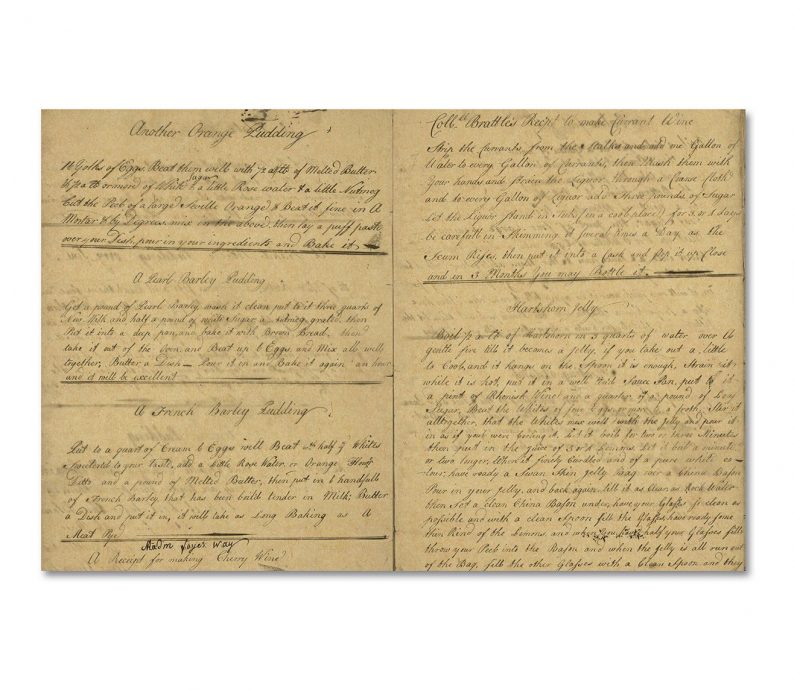 Another Orange Pudding
Yolks of Eggs Beat them well with ½ a lb of Melted Butter
Sugar
½ a lb or more of White & a little Rose water & a little Nutmeg
Cut the Peel of a large Seville Orange & Beat it fine in A
Mortar & by Degrees mix in the above, then lay a puff paste
over your Dish, pour in your ingredients and Bake it
A Pearl Barley Pudding
Get a pound of Pearl Barley, wash it clean put to it three quarts of
New Milk and half a pound of white Sugar a Nutmeg grated, then
Put it into a deep pan, and bake it with Brown Bread, then
take it out of the Oven, and Beat up 6 Eggs, and Mix all well
together, Butter a Dish — Pour it in and Bake it again an hour
and it will be excellent
A French Barley Pudding
Put to a quart of Cream 6 Eggs well Beat wth half ye Whites
sweetend to your taste, add a little Rose Water, or Orange Flower
Ditto and a pound of Melted Butter, then put in 6 handfulls
of French Barley, that has been boild tender in Milk, Butter
a Dish and put it in, it will take as Long Baking as A
Meat Pye
Madm Sayer Way
A Receipt for making Cherry Wine
Brattle's Recpt to make Currant Wine
Strip the Currants from the Stalks and add one Gallon of
Water to every Gallon of Currants, then Mash them with
Your hands and Strain the Liquor through a Coarse Cloth
and to every Gallon of Liquor add Three pounds of Sugar
Let the Liquor stand in Tubs (in a cool place) for 3 or 4 days
be carefull in Skimming it several times a Day as the
Scum Rises, then put it into a Cask and Stop it up Close
and in 3 Months You may Bottle it
Hartshorn Jelly
Boil ½ a lb of Hartshorn in 3 quarts of water over A
gentle fire till it becomes a jelly, if you take out a little
to Cool, and it hangs on the Spoon it is enough, Strain it
while it is hot, put it in a well Tin'd Sauce Pan, put to it
a pint of Rhenish Wine and a quarter of a pound of Loaf
Sugar, Beat the Whites of four Eggs or more to a froth, Stir it
alltogether, that the Whites mix well with the Jelly and pour it
in as if your were Cooling it, Let it boil for two or three Minutes
then put in the juice of 3 or 4 Lemons Let it boil a minute
or two longer, When it finely Curdled and of a pure white co-
lour, have ready a Swan Skin Jelly bag over a China Bason
Pour in your jelly, and back again, till it as Clear as Rock Water
then Set a clean China Bason under, have your Glasses as clean as
possible and with a clean Spoon fill the Glasses have ready some
thin Rind of the Lemons, and when you have half your Glasses fill'd
throw your Peel into the Bason, and when the jelly is all run out
of the Bag, fill the other Glasses with a Clean Spoon and they